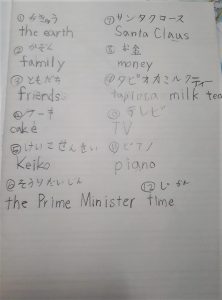 ①ちきゅう
the earth
②かぞく
family
③ともだち
friends
④ケーキ
cake
⑤けいこせんせい
Keiko
⑥そうりだいじん
the Prime Minister
⑦サンタクロース
Santa Claus
⑧お金
money
⑨タピオカミルクティー
tapioca milk tea
⑩テレビ
TV
⑪ピアノ
piano
⑫じかん
time